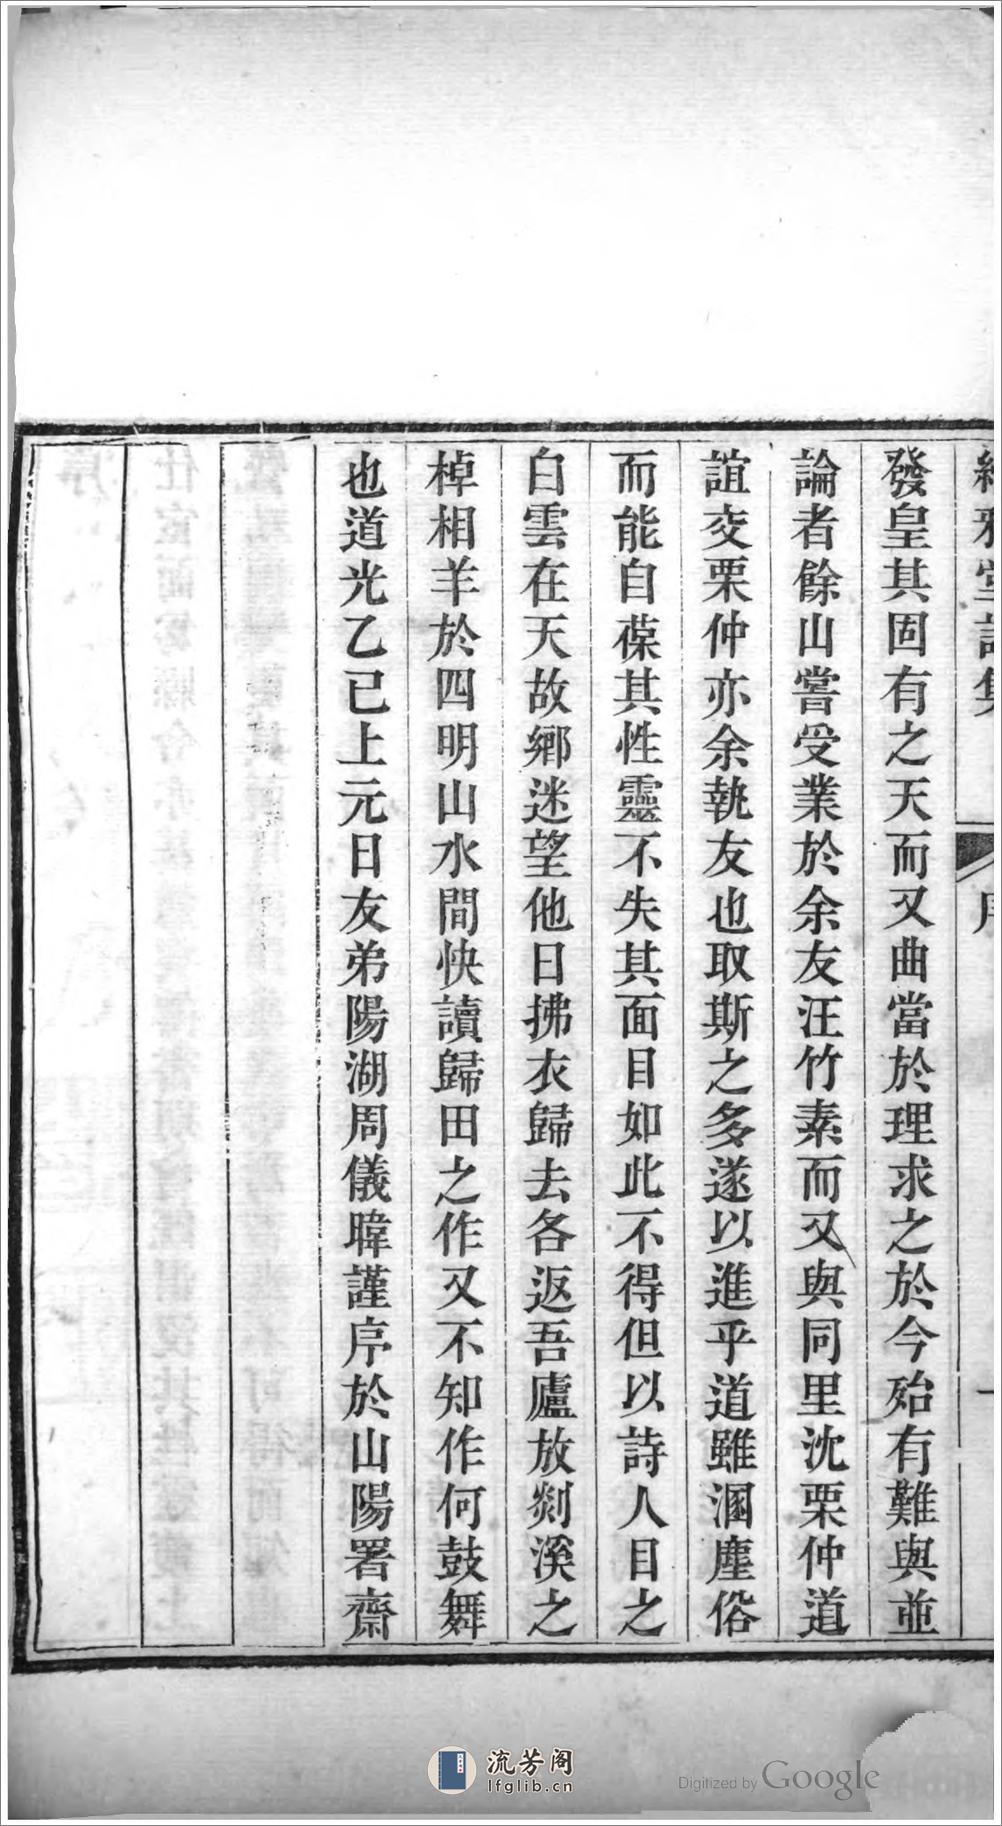 雅堂詩集 序 一
發皇其固有之天而又曲當於理求之於今殆有難與並
論者餘山嘗受業於余友汪竹素而又與同里沈栗仲道
誼交栗仲亦余執友也取斯之多遂以進乎道雖溷塵俗
而能自葆其性靈不失其面目如此不得但以詩人目之
白雲在天故鄉迷望他日拂衣歸去各返吾廬放剡溪之
棹相羊於四明山水間快讀歸田之作又不知作何鼓舞
也道光乙巳上元日友弟陽湖周儀暐謹序於山陽署齋
流芳阁
lfglib.cn
Digitized by Google